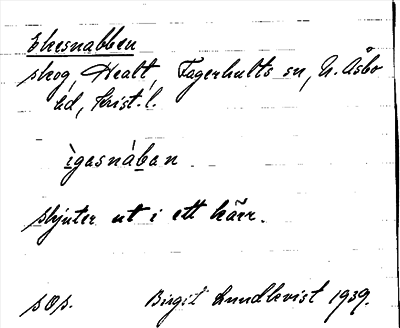 Ekesnabben
skog, Healt, Fagerhults sn, N. Åsbo
hd, Krist. l.
ìgasnàban
skjuter ut i ett kärr.
sOs. Birgit Lundkvist 1939.